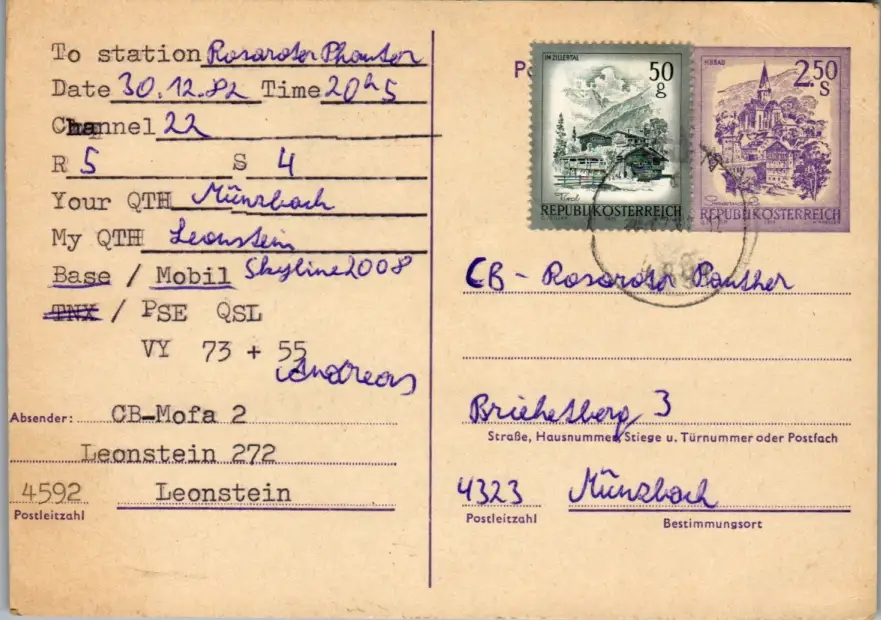 To station Rosaroter Phanter
Date 30.12.82 Time 20h5
Channel 22
R 5 S 4
Your QTH Münzbach
My QTH Leonstein
Base / Mobil Skyline 2008
TNX / PSE QSL
VY 73 + 55
Andreas
Absender: CB-Mofa 2
Leonstein 272
4592 Leonstein
Postleitzahl
IM ZILLERTAL
50 g
Tirol
REPUBLIK ÖSTERREICH
2.50 S
REPUBLIK ÖSTERREICH
CB - Rosaroter Panther
3
Straße, Hausnummer, Stiege u. Türnummer oder Postfach
4323 Münzbach
Postleitzahl
Bestimmungsort